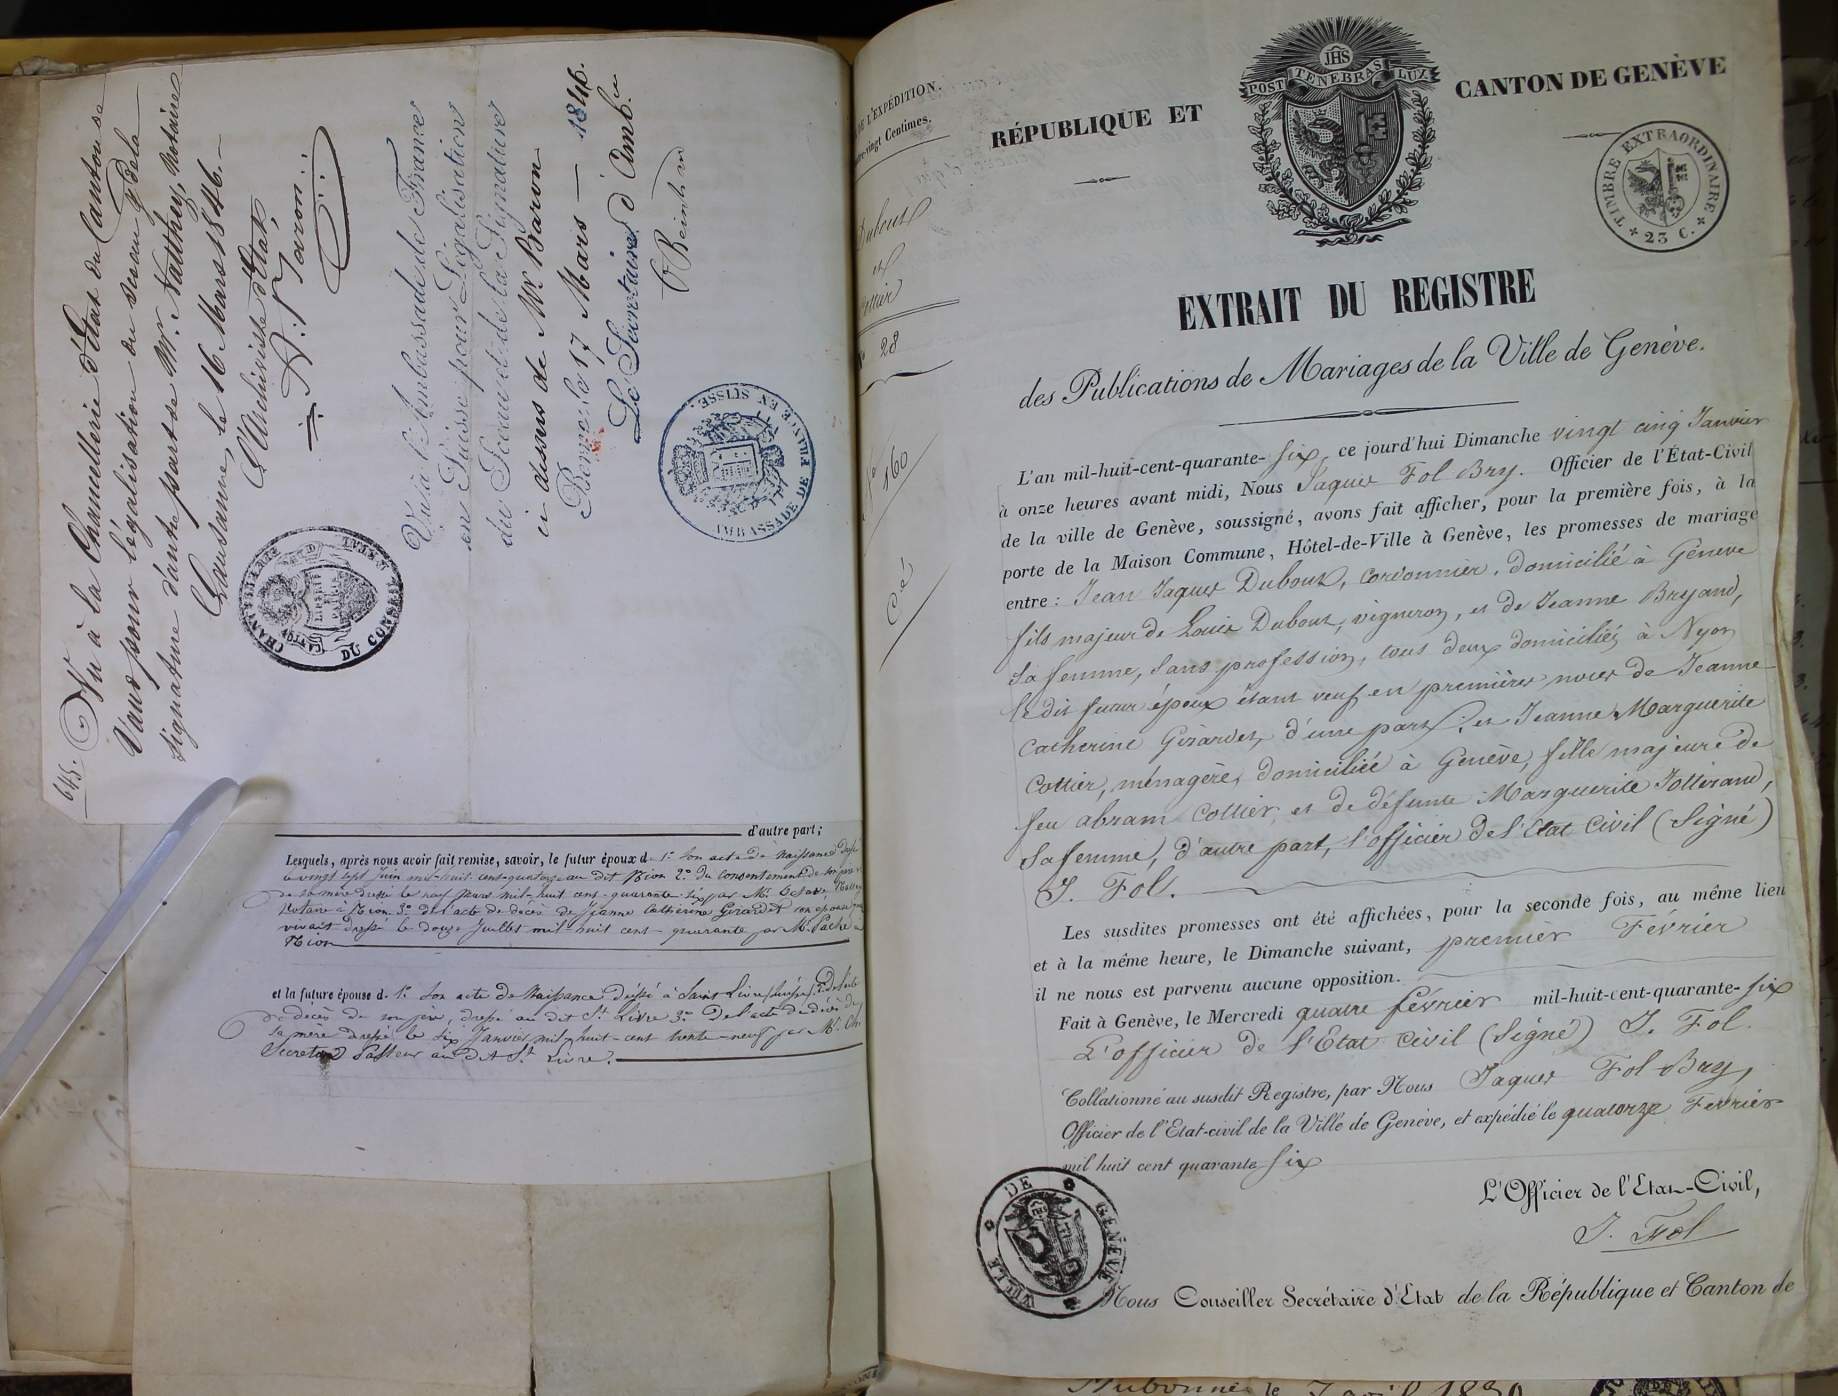 645.
Vu à la Chancellerie d'État du Canton de
Vaud pour légalisation du sceau & de la
signature d'autre part de Mr. Natthey, Notaire
Lausanne, le 16 Mars 1846.
L'Archiviste d'État,
A. Baron
Vu à l'Ambassade de France
en Suisse pour Légalisation
du Sceau et de la Signature
ci dessus de Mr Baron
Berne, le 17 Mars — 1846.
Le Secrétaire d'Amb.
CHANCELLERIE DU CONSEIL D'ÉTAT
CANTON DE VAUD
LIBERTÉ ET PATRIE
AMBASSADE DE FRANCE EN SUISSE.
d'autre part;
Lesquels, après nous avoir fait remise, savoir, le futur époux d. 1.° Son acte de Naissance
le vingt sept Juin mil-huit-cent-quatorze au dit Nion 2.° Du consentement de son père
de sa mère dressé le neuf Mars mil-huit cent-quarante-six par Mr. Octave Natthey
Notaire à Nion 3.° de l'acte de décès de Jeanne Cathérine Girardet son épouse
vivait dressé le douze Juillet mil-huit cent-quarante par Mr. Pache à
Nion
et la future épouse d. 1.° Son acte de Naissance dressé à Saint Livre (Suisse) 2.°
de décès de son père, dressé au dit St. Livre 3.° De l'acte de décès de
sa mère dressé le six Janvier mil-huit-cent trente-neuf par Mr. Ch.
Secretan Pasteur au dit St. Livre.
DE L'EXPÉDITION.
vingt Centimes.
Dubout
et
Cottier
N° 28
f° 160
Cé
RÉPUBLIQUE ET CANTON DE GENÈVE
JHS
POST TENEBRAS LUX
TIMBRE EXTRAORDINAIRE
25 C.
EXTRAIT DU REGISTRE
des Publications de Mariages de la Ville de Genève.
L'an mil-huit-cent-quarante-six, ce jourd'hui Dimanche vingt cinq Janvier
à onze heures avant midi, Nous Jaques Fol Bry. Officier de l'État-Civil
de la ville de Genève, soussigné, avons fait afficher, pour la première fois, à la
porte de la Maison Commune, Hôtel-de-Ville à Genève, les promesses de mariage
entre: Jean Jaques Duboux, cordonnier, domicilié à Genève
fils majeur de Louis Duboux, vigneron, et de Jeanne Bryand,
sa femme, sans profession, tous deux domiciliés à Nyon
le dit futur époux étant veuf en premières noces de Jeanne
Catherine Girardet, d'une part; et Jeanne Marguerite
Cottier, ménagère, domiciliée à Genève, fille majeure de
feu abram Cottier, et de défunte Marguerite Jotterand,
sa femme, d'autre part, l'officier de l'Etat Civil (Signé)
J. Fol.
Les susdites promesses ont été affichées, pour la seconde fois, au même lieu
et à la même heure, le Dimanche suivant, premier Février
il ne nous est parvenu aucune opposition.
Fait à Genève, le Mercredi quatre février mil-huit-cent-quarante-six
L'officier de l'Etat civil (Signé) J. Fol.
Collationné au susdit Registre, par Nous Jaques Fol-Bry,
Officier de l'Etat-civil de la Ville de Genève, et expédié le quatorze Fevrier
mil huit cent quarante six
L'Officier de l'Etat-Civil,
J. Fol
VILLE DE GENÈVE
Nous Conseiller Secrétaire d'Etat de la République et Canton de
Aubonne le 7 avril 1839